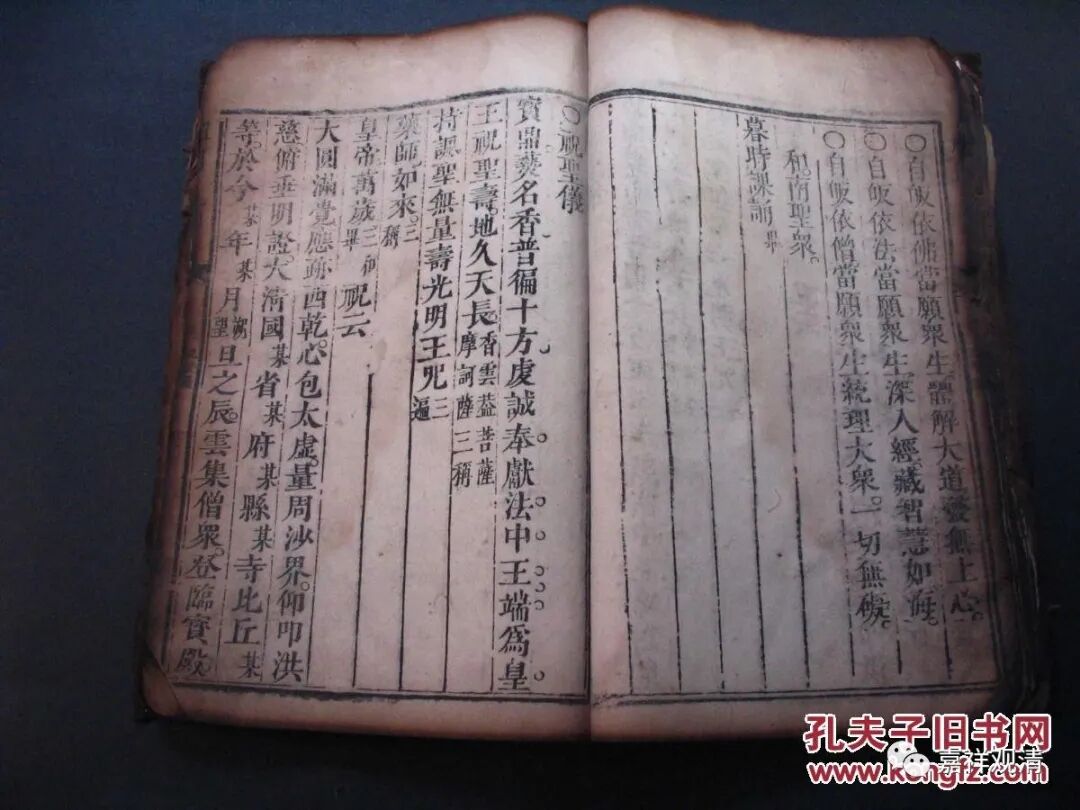 ○自皈依佛當願衆生體解大道發無上心。
○自皈依法當願衆生深入經藏智慧如海。
○自皈依僧當願衆生統理大衆。一切無礙。
和南聖衆。
暮時課誦畢
○祝聖儀
寶鼎爇名香普徧十方虔誠奉獻法中王端爲皇
王祝聖壽。地久天長。香雲葢菩薩摩訶薩三稱
持誦聖無量壽光明王咒三遍
藥師如來。三稱
皇帝萬歲三稱畢祝云
大圓滿覺應跡西乾。心包太虛。量周沙界。仰叩洪
慈俯垂明證。大清國某省某府某縣某寺比丘某
等。於今某年某月朔望旦之辰。雲集僧眾。登臨寶殿。
孔夫子旧书网
www.kongfz.com
嘉祥观清